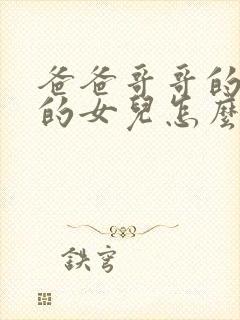 爸爸哥哥的
的女兒怎麼
鉄穹